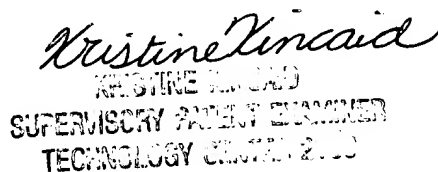 Kristine Kincaid
KRISTINE KINCAID
SUPERVISORY PATENT EXAMINER
TECHNOLOGY CENTER